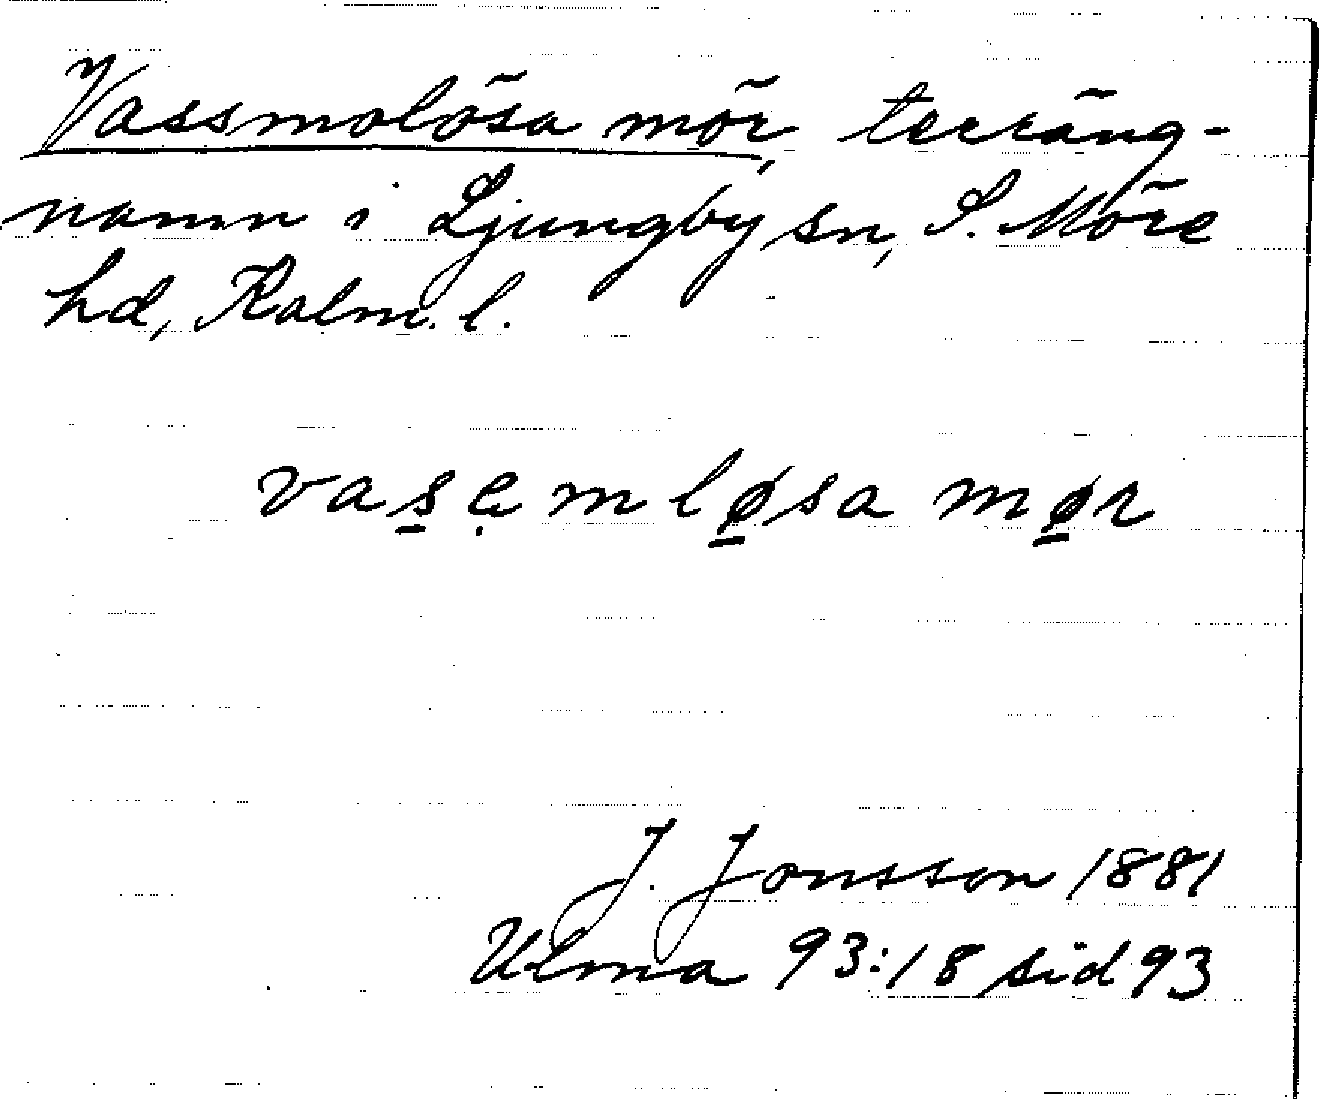 Vassmolösa mör, terräng-
namn i Ljungby sn, S. Möre
hd, Kalm. l.
vas̲ẹmlø̲sa mø̲r
J. Jonsson 1881
Ulma 93:18 sid 93